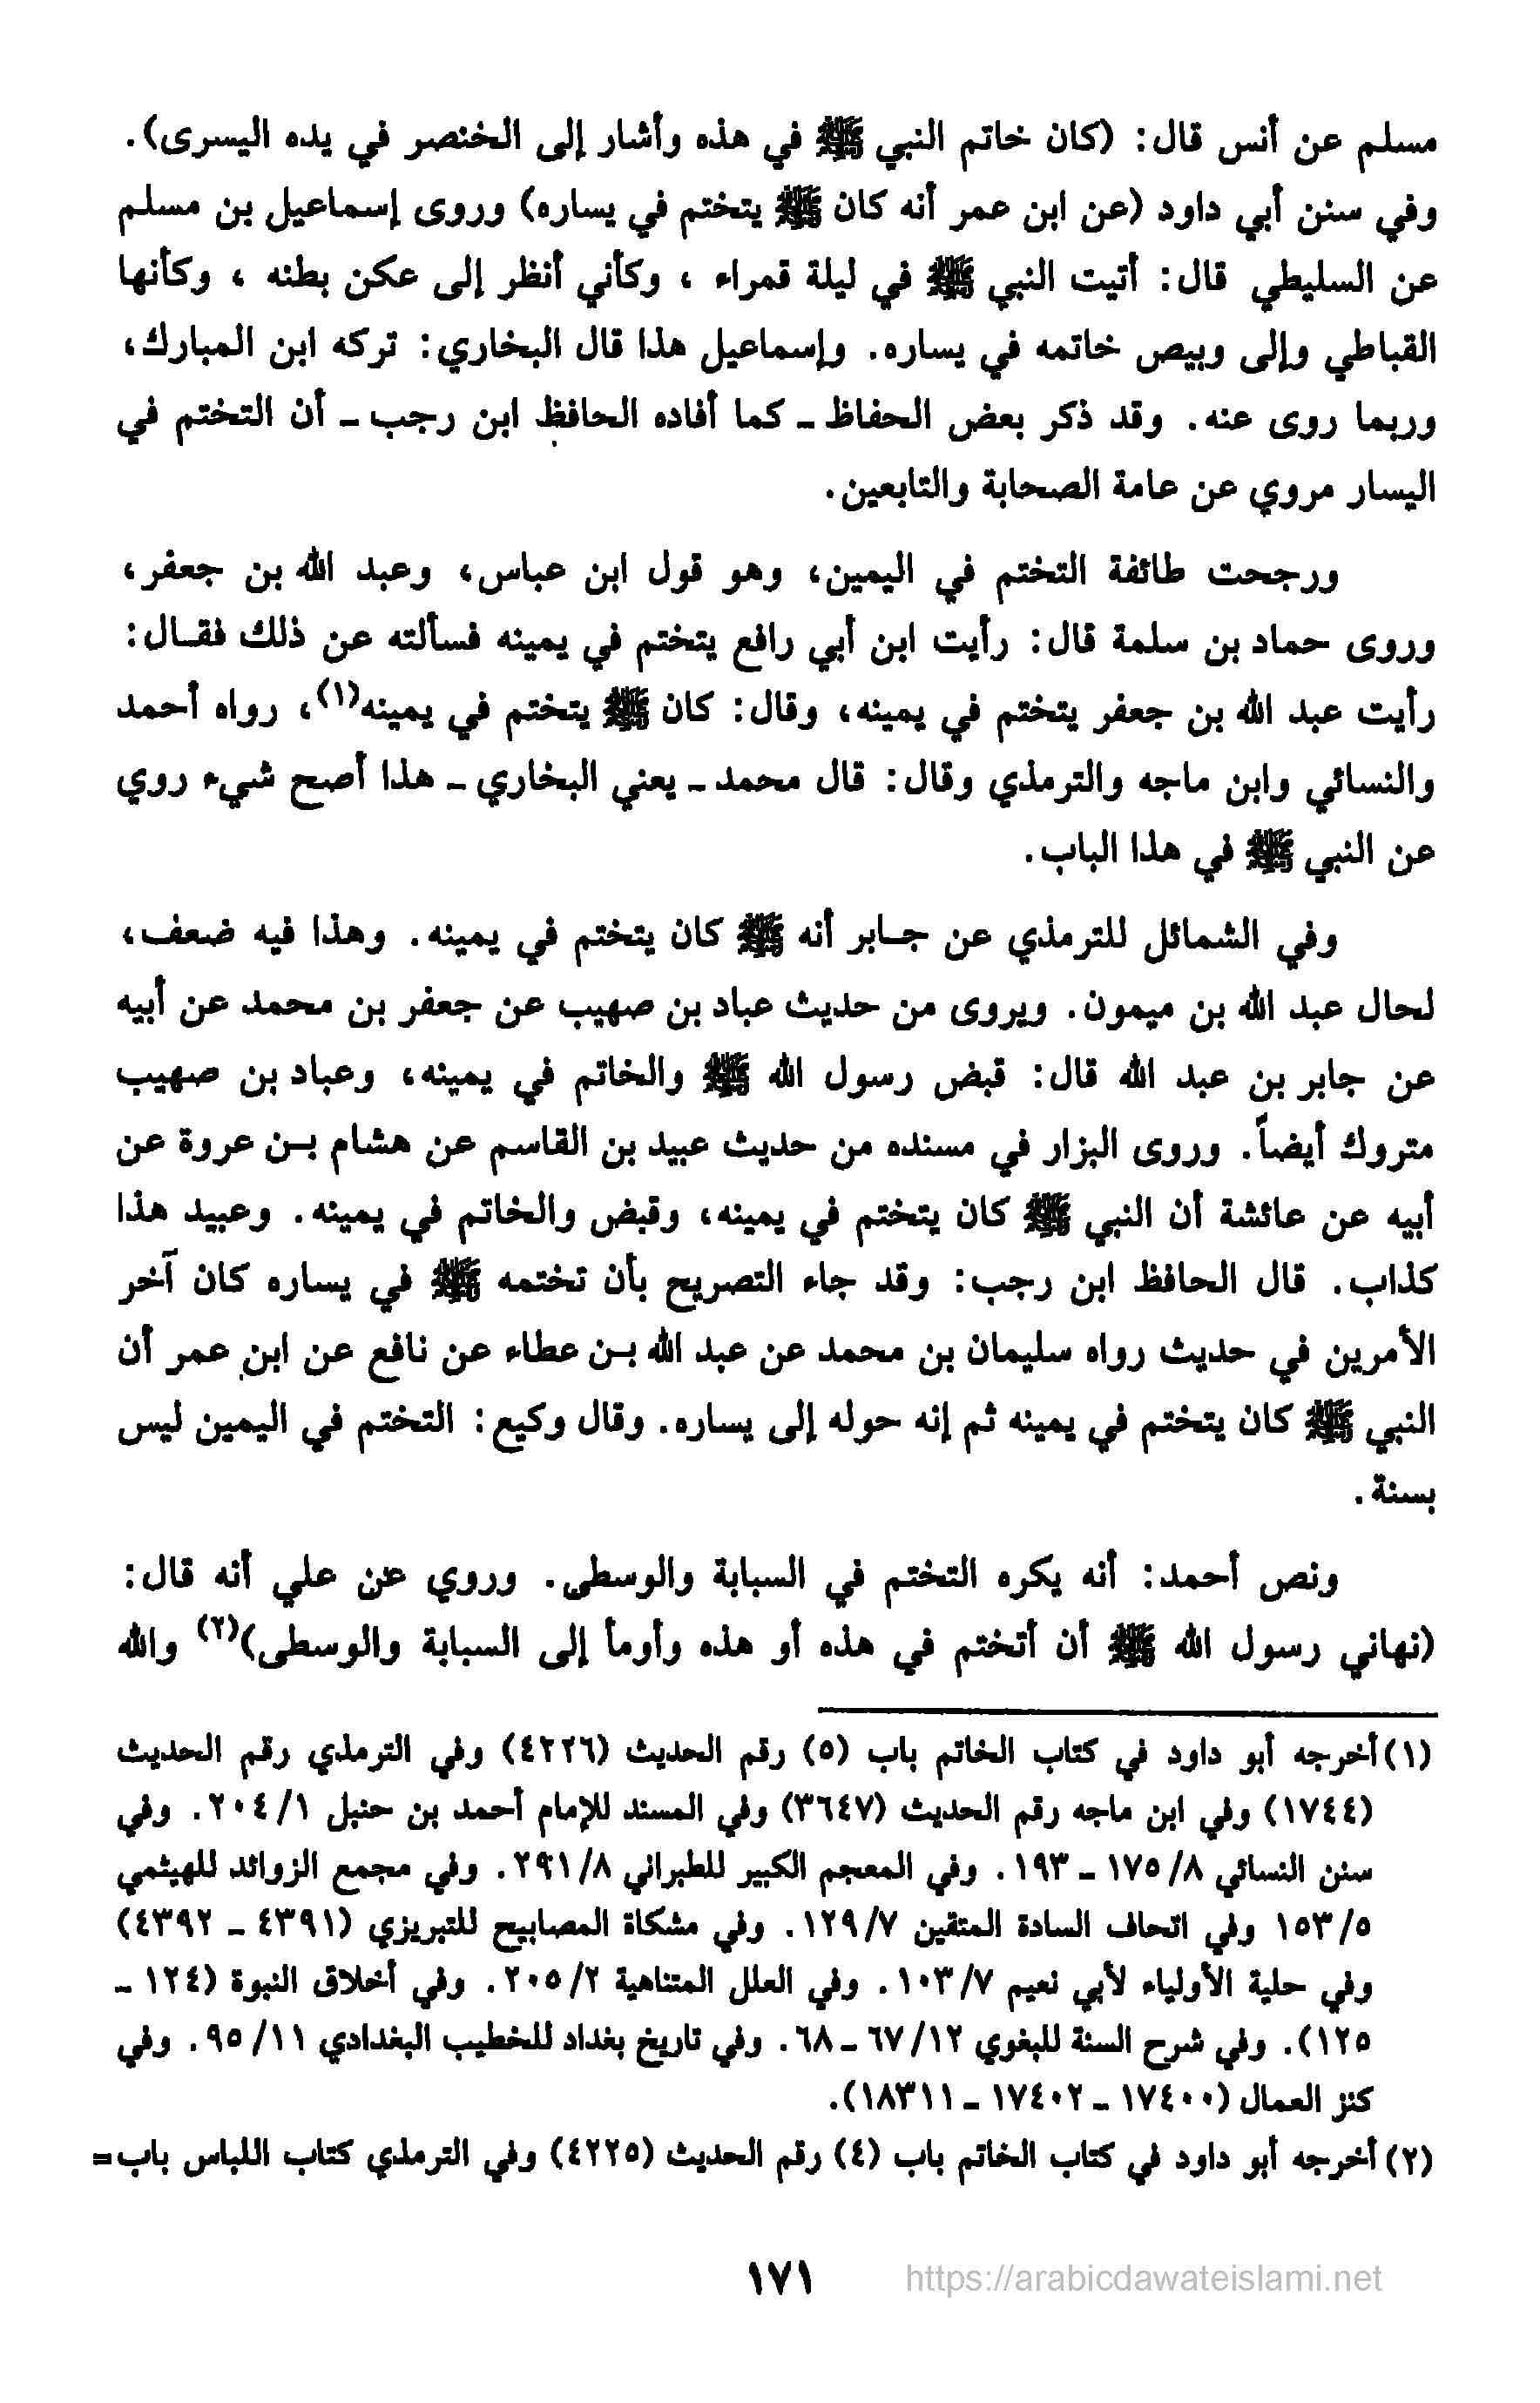 مسلم عن أنس قال: (كان خاتم النبي ﷺ في هذه وأشار إلى الخنصر في يده اليسرى).
وفي سنن أبي داود (عن ابن عمر أنه كان ﷺ يتختم في يساره) وروى إسماعيل بن مسلم
عن السليطي قال: أتيت النبي ﷺ في ليلة قمراء ، وكأني أنظر إلى عكن بطنه ، وكأنها
القباطي وإلى وبيص خاتمه في يساره. وإسماعيل هذا قال البخاري: تركه ابن المبارك،
وربما روى عنه. وقد ذكر بعض الحفاظ ـ كما أفاده الحافظ ابن رجب ـ أن التختم في
اليسار مروي عن عامة الصحابة والتابعين.
ورجحت طائفة التختم في اليمين، وهو قول ابن عباس، وعبد الله بن جعفر،
وروى حماد بن سلمة قال: رأيت ابن أبي رافع يتختم في يمينه فسألته عن ذلك فقـال:
رأيت عبد الله بن جعفر يتختم في يمينه، وقال: كان ﷺ يتختم في يمينه(١)، رواه أحمد
والنسائي وابن ماجه والترمذي وقال: قال محمد ـ يعني البخاري ـ هذا أصح شيء روي
عن النبي ﷺ في هذا الباب.
وفي الشمائل للترمذي عن جـابر أنه ﷺ كان يتختم في يمينه. وهذا فيه ضعف،
لحال عبد الله بن ميمون. ويروى من حديث عباد بن صهيب عن جعفر بن محمد عن أبيه
عن جابر بن عبد الله قال: قبض رسول الله ﷺ والخاتم في يمينه، وعباد بن صهيب
متروك أيضاً. وروى البزار في مسنده من حديث عبيد بن القاسم عن هشام بـن عروة عن
أبيه عن عائشة أن النبي ﷺ كان يتختم في يمينه، وقبض والخاتم في يمينه. وعبيد هذا
كذاب. قال الحافظ ابن رجب: وقد جاء التصريح بأن تختمه ﷺ في يساره كان آخر
الأمرين في حديث رواه سليمان بن محمد عن عبد الله بـن عطاء عن نافع عن ابن عمر أن
النبي ﷺ كان يتختم في يمينه ثم إنه حوله إلى يساره. وقال وكيع: التختم في اليمين ليس
بسنة.
ونص أحمد: أنه يكره التختم في السبابة والوسطى. وروي عن علي أنه قال:
(نهاني رسول الله ﷺ أن أتختم في هذه أو هذه وأومأ إلى السبابة والوسطى)(٢) والله
(١) أخرجه أبو داود في كتاب الخاتم باب (٥) رقم الحديث (٤٢٢٦) وفي الترمذي رقم الحديث
(١٧٤٤) وفي ابن ماجه رقم الحديث (٣٦٤٧) وفي المسند للإمام أحمد بن حنبل ٢٠٤/١. وفي
سنن النسائي ١٧٥/٨ ـ ١٩٣. وفي المعجم الكبير للطبراني ٢٩١/٨. وفي مجمع الزوائد للهيثمي
١٥٣/٥ وفي اتحاف السادة المتقين ١٢٩/٧. وفي مشكاة المصابيح للتبريزي (٤٣٩١ ـ ٤٣٩٢)
وفي حلية الأولياء لأبي نعيم ١٠٣/٧. وفي العلل المتناهية ٢٠٥/٢. وفي أخلاق النبوة (١٢٤ ـ
١٢٥). وفي شرح السنة للبغوي ٦٧/١٢ ـ ٦٨. وفي تاريخ بغداد للخطيب البغدادي ٩٥/١١. وفي
كنز العمال (١٧٤٠٠ ـ ١٧٤٠٢ ـ ١٨٣١١).
(٢) أخرجه أبو داود في كتاب الخاتم باب (٤) رقم الحديث (٤٢٢٥) وفي الترمذي كتاب اللباس باب=
١٧١
https://arabicdawateislami.net